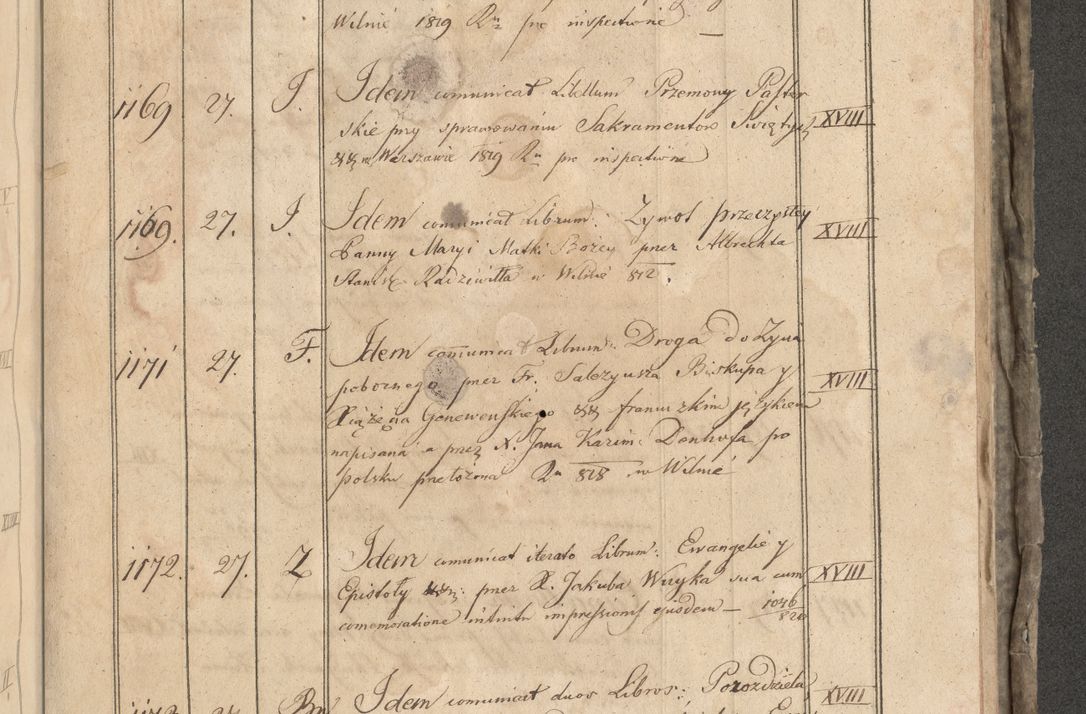 Wilnié 1819 Ru pro inspectioné
1169 27. I. Idem comunicat Libellum Przemowy Paster
skie przy sprawowaniu Sakramentow Swiętych XVIII
w Warszawie 1819 Ru pro inspectioné
1169. 27. I. Idem comunicat Librum: Zywot przeczystey XVIII
Panny Maryi Matki Bożey przez Albrechta
Stanisł. Radziwiłła w Wilnié 812.
1171 27. F. Idem comunicat Librum: Droga do Życia
pobożnego przez Fr. Salezyusza Biskupa y XVIII
Xiążęcia Genewenskiego francuzkim językiem
napisana a przez X. Jana Kazim: Donhofa po
polsku przełożona Ru 818 w Wilnié
1172. 27. Z Idem comunicat iterato Librum: Ewangelie y
Epistoły przez X. Jakuba Wuyka sua cum XVIII
comemoratione intuitu impressionis ejusdem — 1046/820
Idem comunicat duos Libros: XVIII